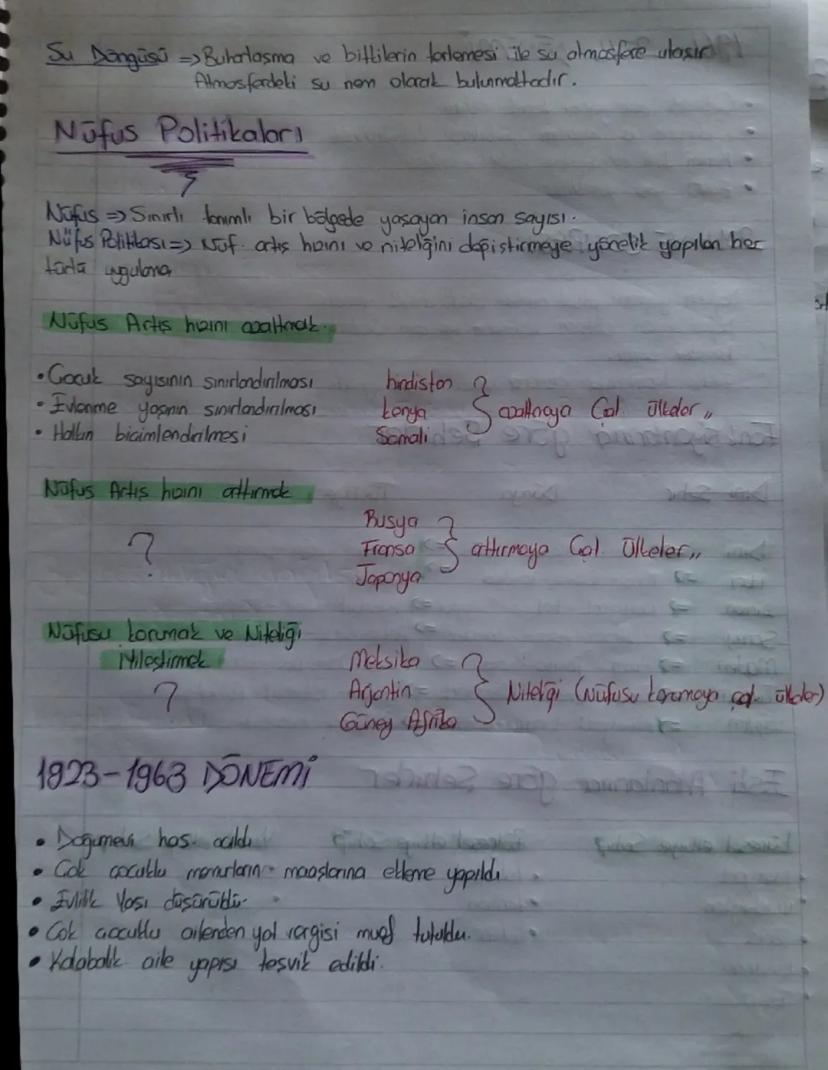 Su Döngüsü => Buharlaşma ve bitkilerin terlemesi ile su atmosfere ulaşır
Atmosferdeki su nem olarak bulunmaktadır.
Nüfus Politikaları
Nüfus => Sınırlı tanımlı bir bölgede yaşayan insan sayısı.
Nüfus Politikası => Nüf. artış hızını ve niteliğini değiştirmeye yönelik yapılan her
türlü uygulama
Nüfus Artış hızını azaltmak.
• Çocuk sayısının sınırlandırılması hindistan
• Evlenme yaşının sınırlandırılması kenya } azaltmaya Çal Ülkeler,,
• Halkın bicimlendirilmesi Somali
Nüfus Artış hızını arttırmak
Rusya
? Fransa } arttırmaya Çal Ülkeler,,
Japonya
Nüfusu korumak ve Niteliği
iyileştirmek Meksika
? Arjantin } Niteliği (Nüfusu korumaya çal. ülkeler)
Güney Afrika
1923-1963 DÖNEMİ
• Doğumevi has. açıldı
• Çok çocuklu memurların maaşlarına ekleme yapıldı
• Evlilik Yaşı düşürüldü.
• Çok çocuklu ailerden yol vergisi muaf tutuldu.
• Kalabalık aile yapısı teşvik edildi.